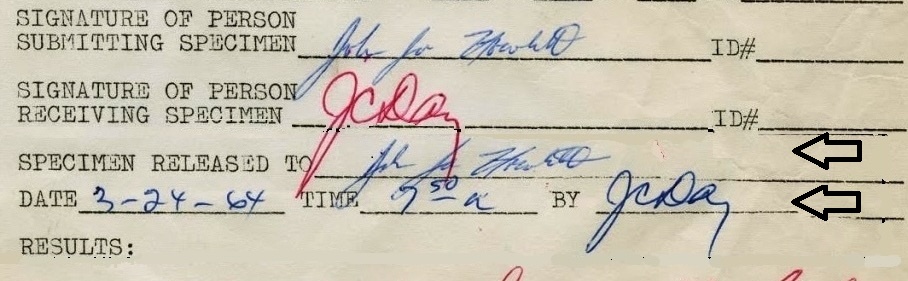 SIGNATURE OF PERSON
SUBMITTING SPECIMEN John Joe Howlett ID#
SIGNATURE OF PERSON
RECEIVING SPECIMEN JCDay ID#
SPECIMEN RELEASED TO John Joe Howlett
DATE 3-24-64 TIME 7 50 a BY JCDay
RESULTS: